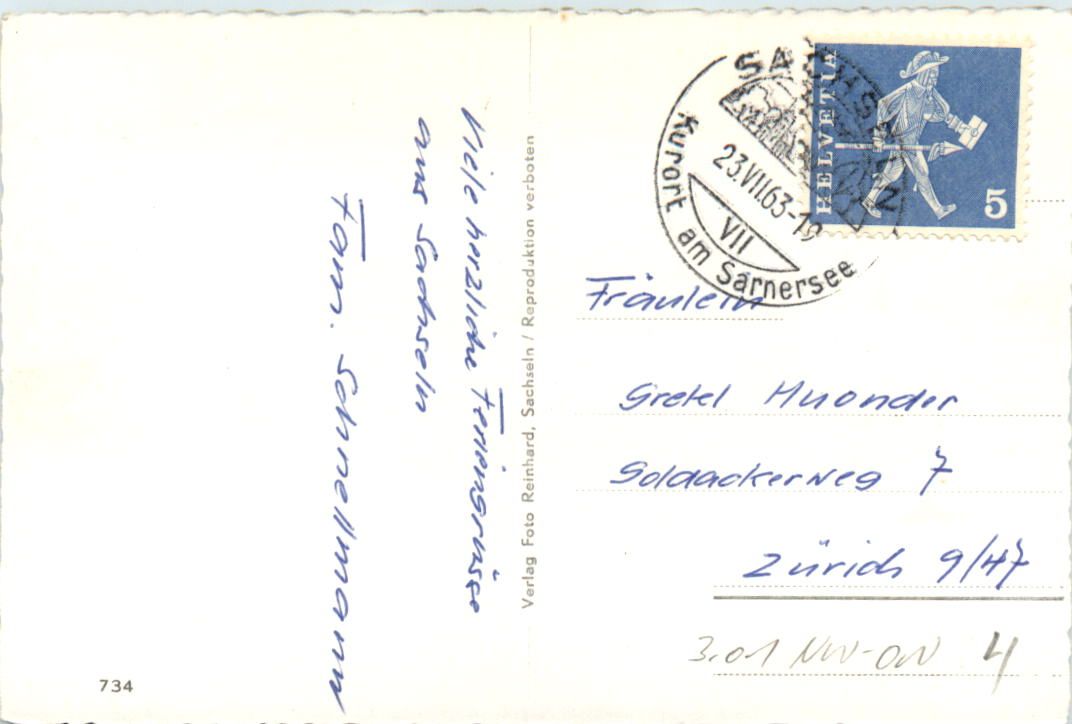 Viele herzliche Feriengrüsse
aus Sachseln
Fam. Schnellmann
Verlag Foto Reinhard, Sachseln / Reproduktion verboten
734
SACHSELN
23.VII.63-19
VII
Kurort am Sarnersee
HELVETIA
5
Fräulein
Gretel Huonder
Goldackerweg 7
Zürich 9/47
3.01 NW-OW 4